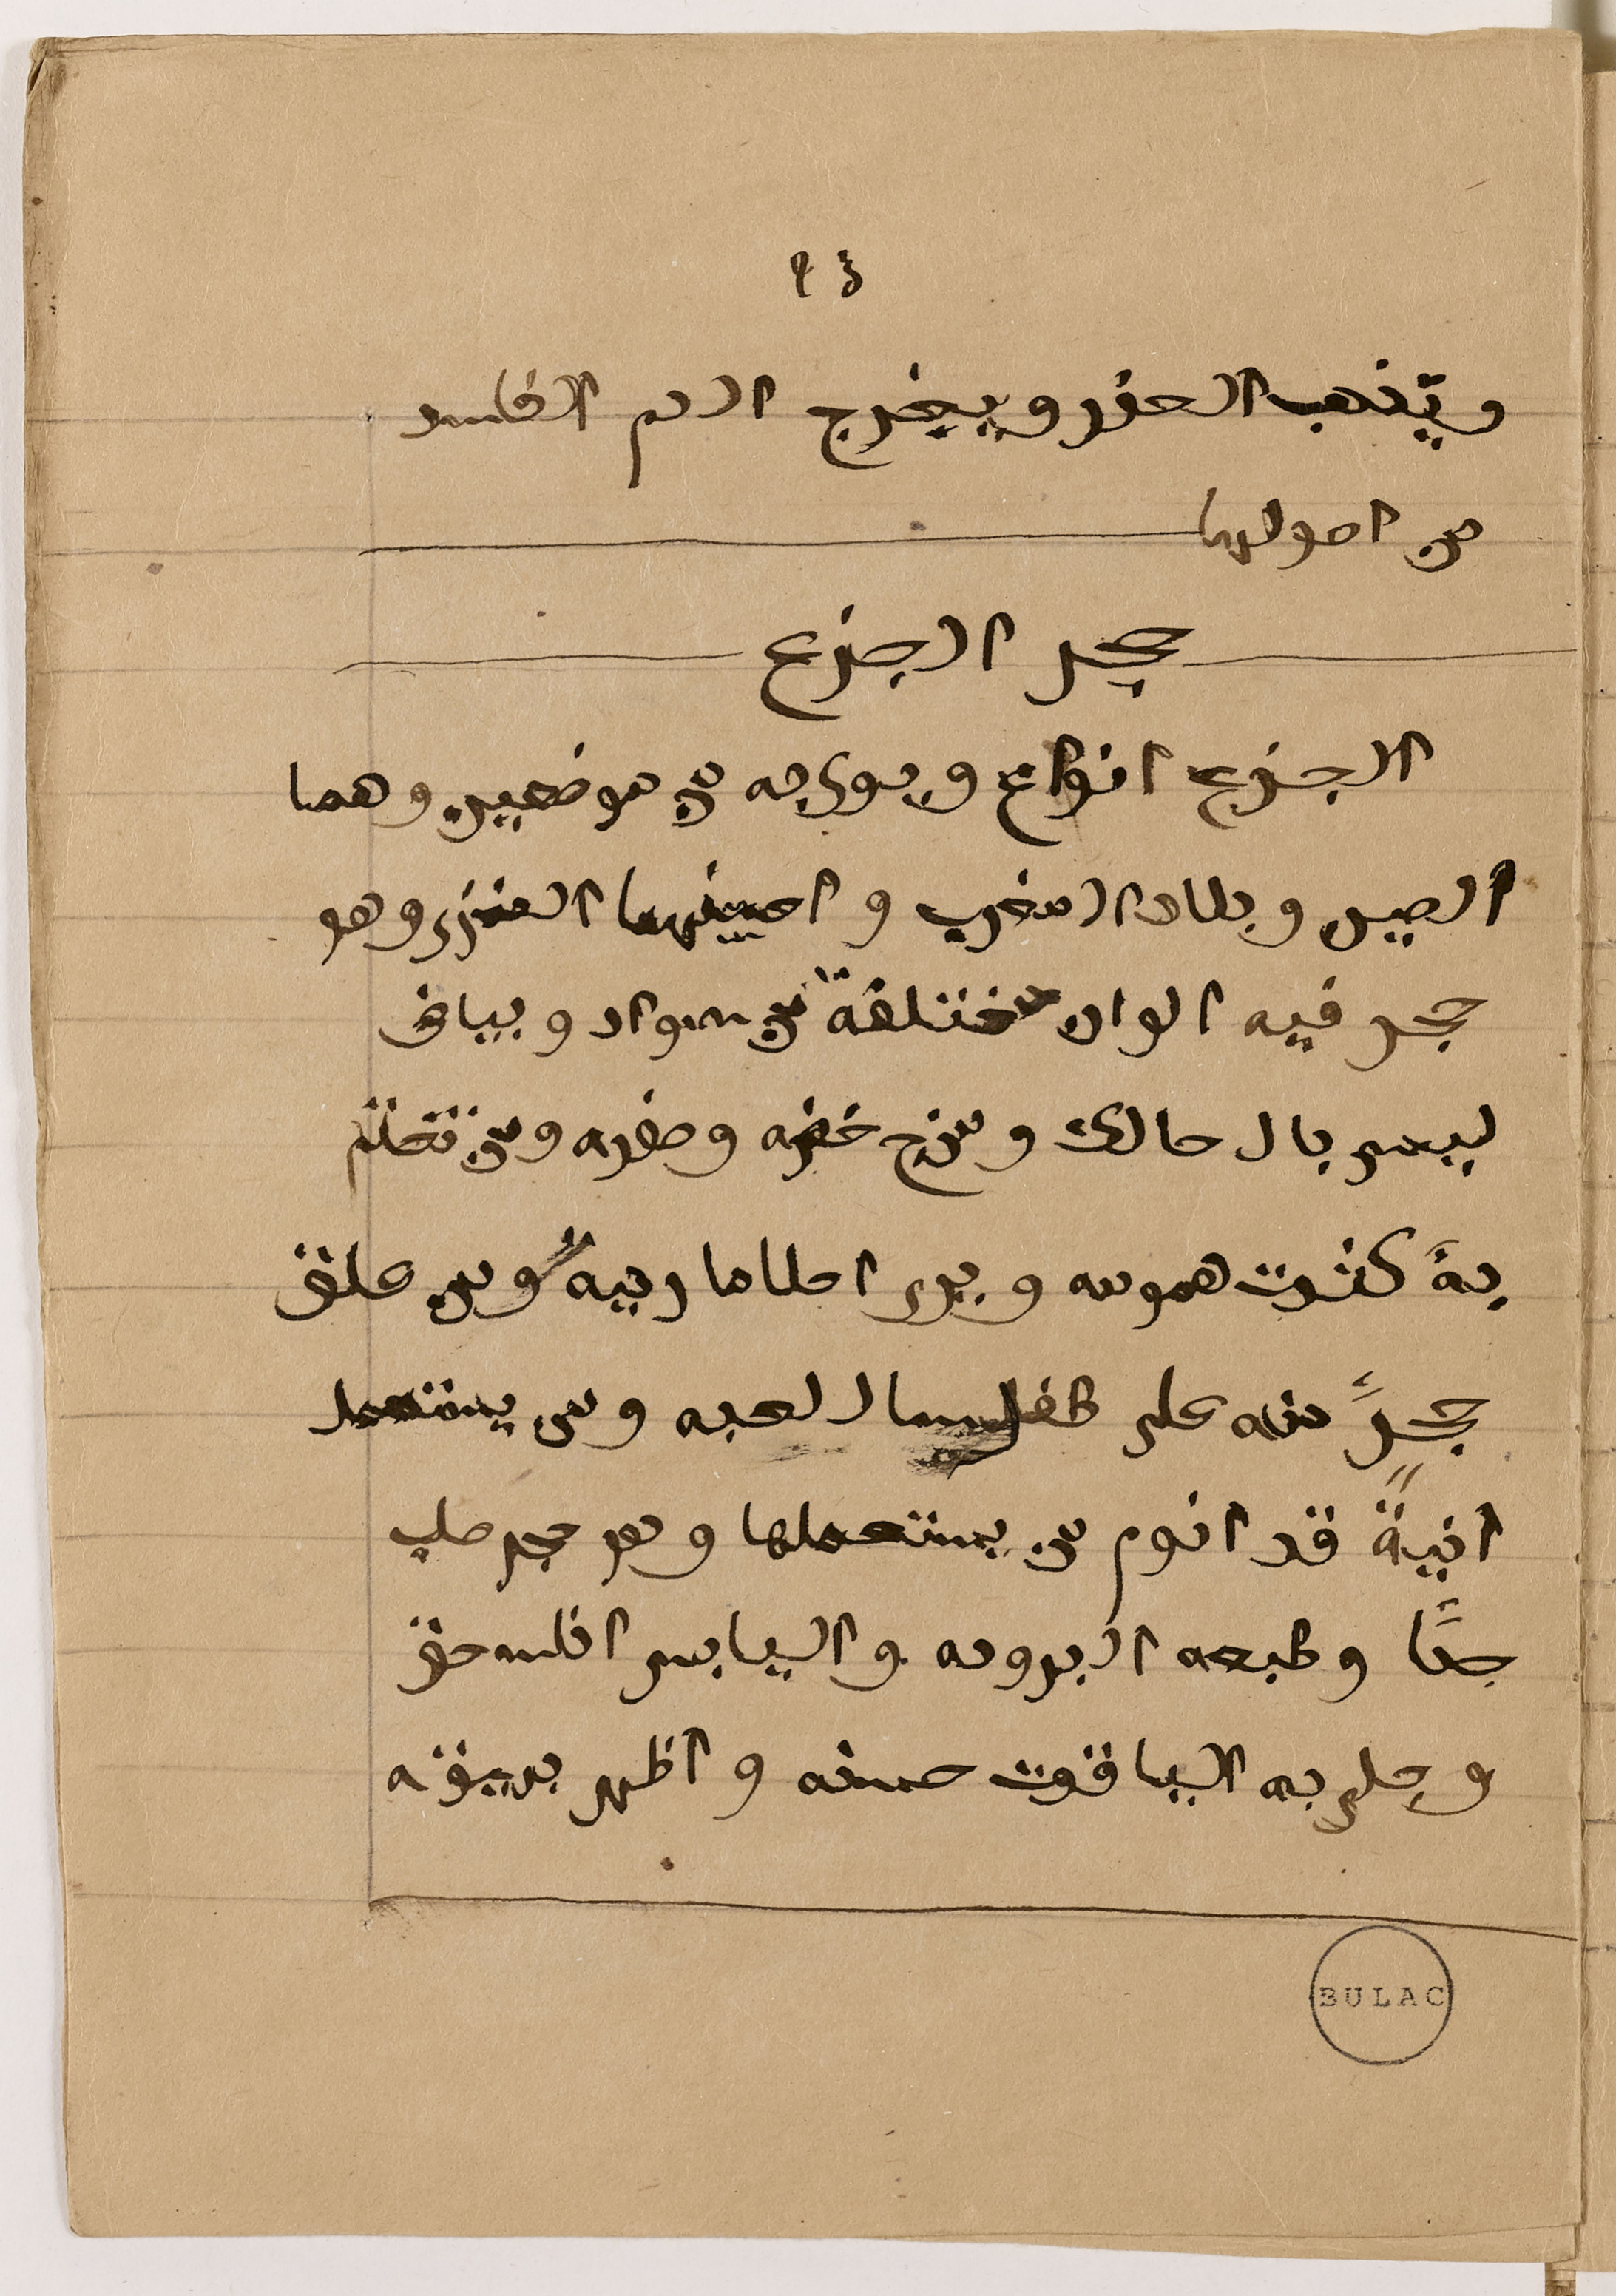 ٤٩
ويذهب الحفر ويخرج الدم الفاسد
من اصولها
حجر الجزع
الجزع انواع ويوجد من موضعين وهما
الصين وبلاد المغرب و احسنهما وهو
حجر فيه الوان مختلفة من سواد وبياض
ليس بال حالك ومن ج خضره وصفره ومن تختم
به كثرت همومه ويرى احلاما رديه ومن علق
حجرً منه على طفل سال لعبه ومن يستعمل
انيةً قد انوم من يستعملها وهو حجر صلب
جدًا وطبعه البروده و اليابس اذا سحق
و جلى به الياقوت حسنه و اظهر بريقه
BULAC